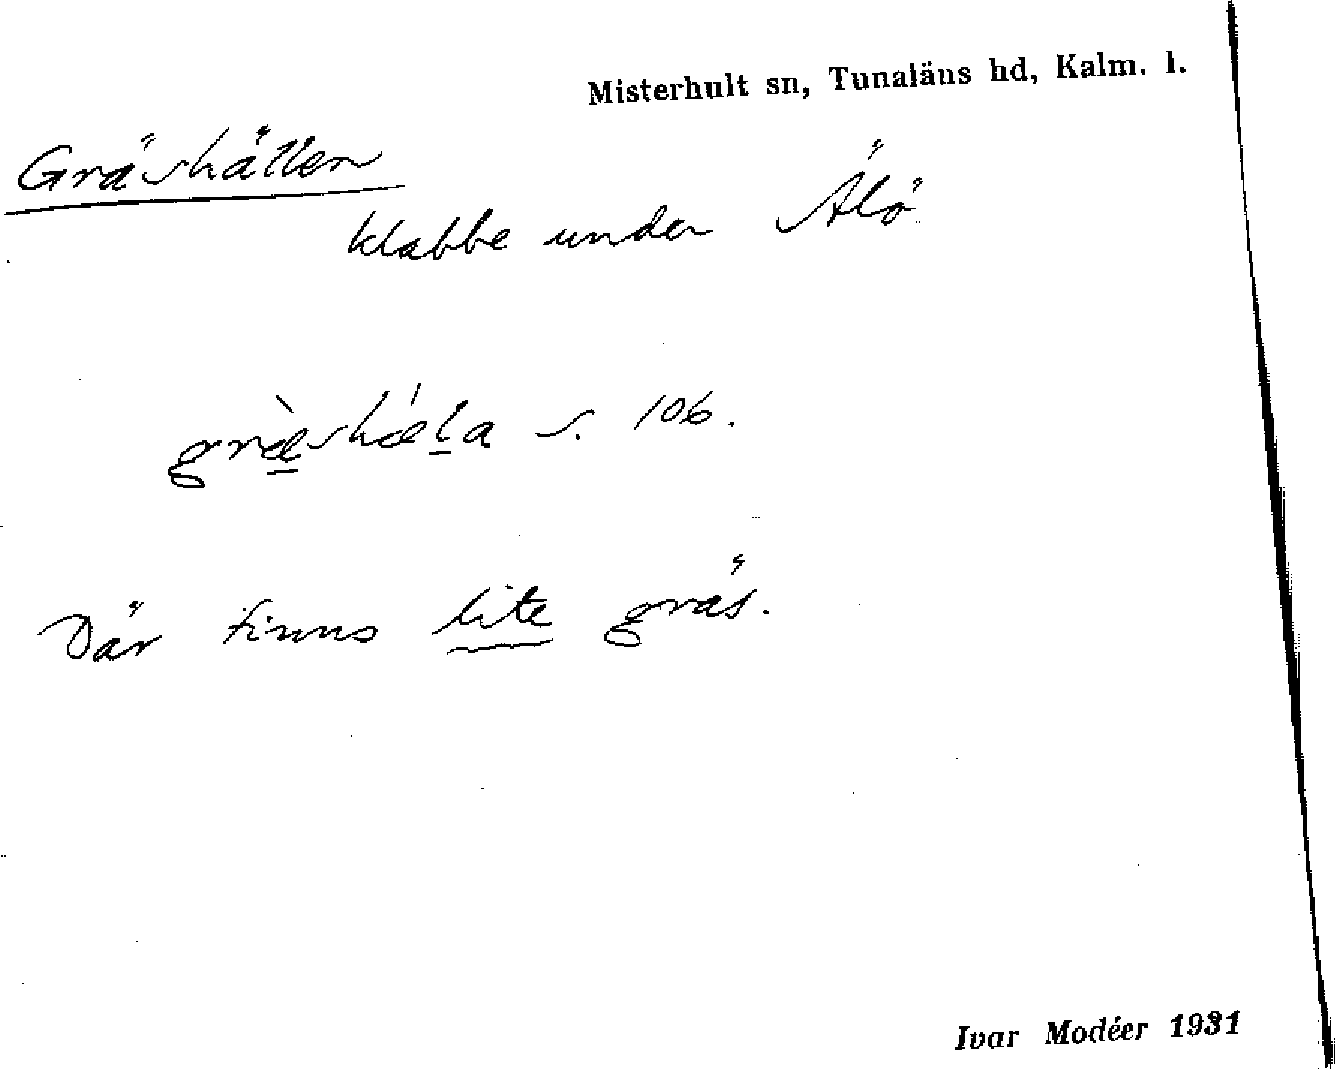 Misterhult sn, Tunaläns hd, Kalm. l.
Gräshällen
klabbe under Älö
græ̀shǽla s. 106.
Där finns lite gräs.
Ivar Modéer 1931